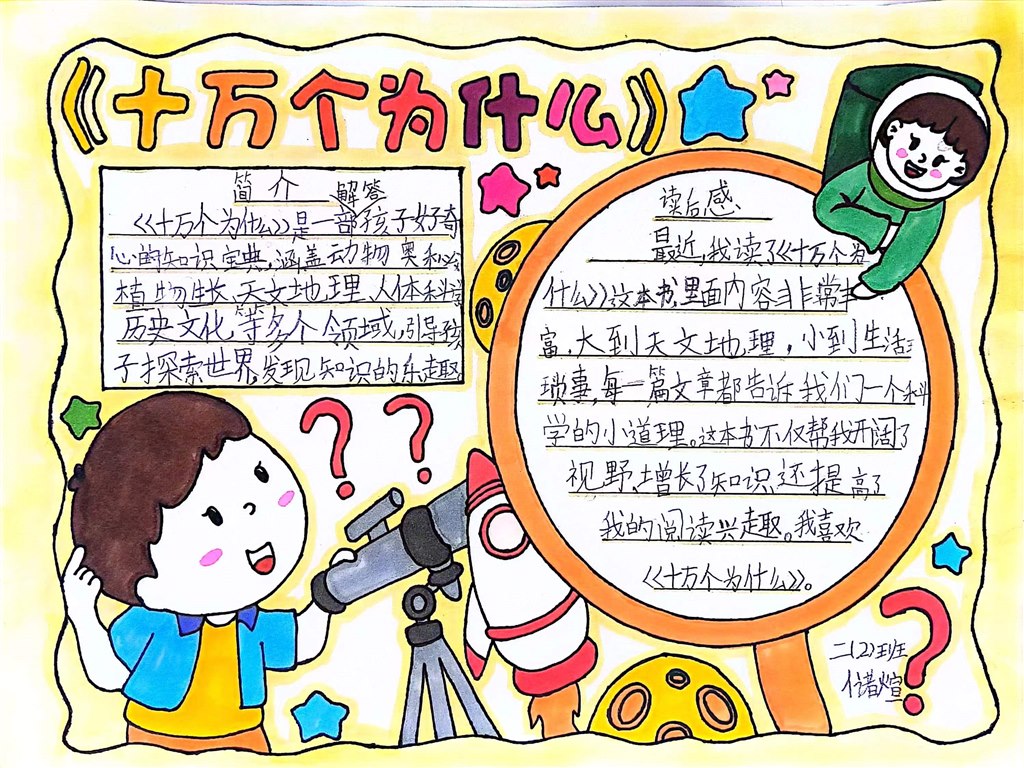 《十万个为什么》
简介 解答
《十万个为什么》是一部孩子好奇
心的知识宝典,涵盖动物奥秘
植物生长、天文地理、人体科学
历史文化,等多个领域,引导孩
子探索世界,发现知识的乐趣。
读后感
最近,我读了《十万个为
什么》这本书,里面内容非常丰
富,大到天文地理,小到生活
琐事,每一篇文章都告诉我们一个科
学的小道理。这本书不仅帮我开阔了
视野、增长了知识,还提高了
我的阅读兴趣。我喜欢
《十万个为什么》。
二(2)班
储煊